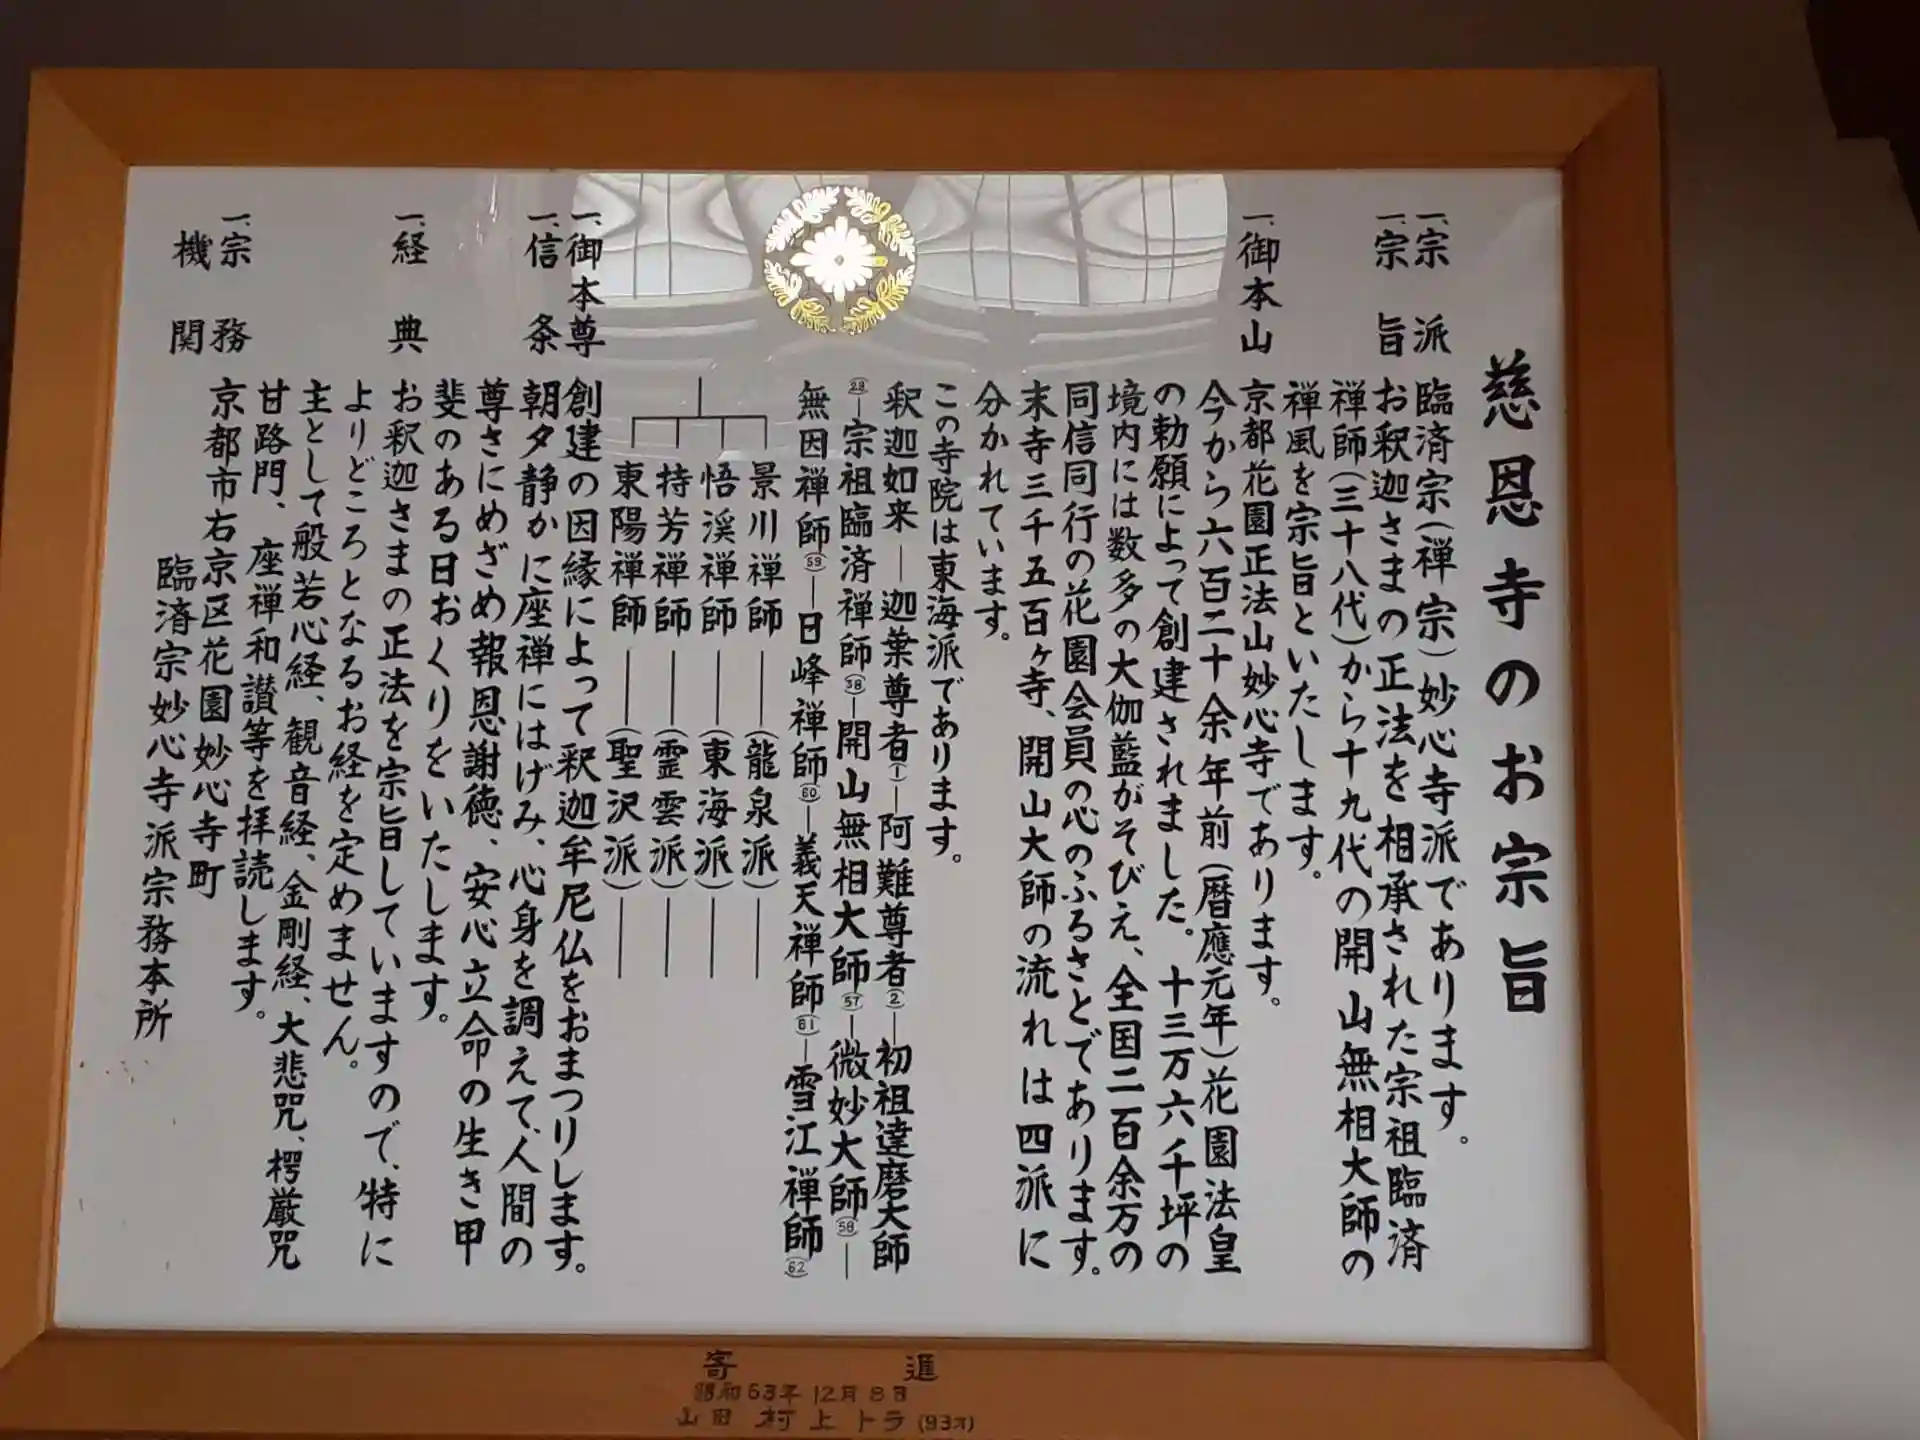 慈恩寺のお宗旨
一、宗派 臨済宗(禅宗)妙心寺派であります。
一、宗旨 お釈迦さまの正法を相承された宗祖臨済
禅師(三十八代)から十九代の開山無相大師の
禅風を宗旨といたします。
一、御本山 京都花園正法山妙心寺であります。
今から六百二十余年前(暦應元年)花園法皇
の勅願によって創建されました。十三万六千坪の
境内には数多の大伽藍がそびえ、全国二百余万の
同信同行の花園会員の心のふるさとであります。
末寺三千五百ヶ寺、開山大師の流れは四派に
分かれています。
この寺院は東海派であります。
釈迦如来―迦葉尊者(1)―阿難尊者(2)―初祖達磨大師
(28)―宗祖臨済禅師(38)―開山無相大師(57)―微妙大師(58)―
無因禅師(59)―日峰禅師(60)―義天禅師(61)―雪江禅師(62)
景川禅師――(龍泉派)――
悟渓禅師――(東海派)――
特芳禅師――(霊雲派)――
東陽禅師――(聖沢派)――
一、御本尊 創建の因縁によって釈迦牟尼仏をおまつりします。
一、信条 朝夕静かに座禅にはげみ、心身を調えて、人間の
尊さにめざめ報恩謝徳、安心立命の生き甲
斐のある日おくりをいたします。
一、経典 お釈迦さまの正法を宗旨していますので、特に
よりどころとなるお経を定めません。
主として般若心経、観音経、金剛経、大悲咒、楞厳咒
甘路門、座禅和讃等を拝読します。
一、宗務機関 京都市右京区花園妙心寺町
臨済宗妙心寺派宗務本所
寄進
昭和63年12月8日
山田 村上トラ(93才)